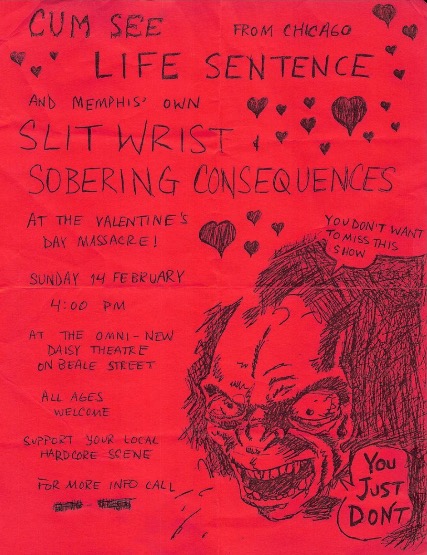 CUM SEE FROM CHICAGO
LIFE SENTENCE
AND MEMPHIS' OWN
SLIT WRIST &
SOBERING CONSEQUENCES
AT THE VALENTINE'S
DAY MASSACRE!
YOU DON'T WANT
TO MISS THIS
SHOW
SUNDAY 14 FEBRUARY
4:00 PM
AT THE OMNI-NEW
DAISY THEATRE
ON BEALE STREET
ALL AGES
WELCOME
SUPPORT YOUR LOCAL
HARDCORE SCENE
FOR MORE INFO CALL
YOU
JUST
DON'T